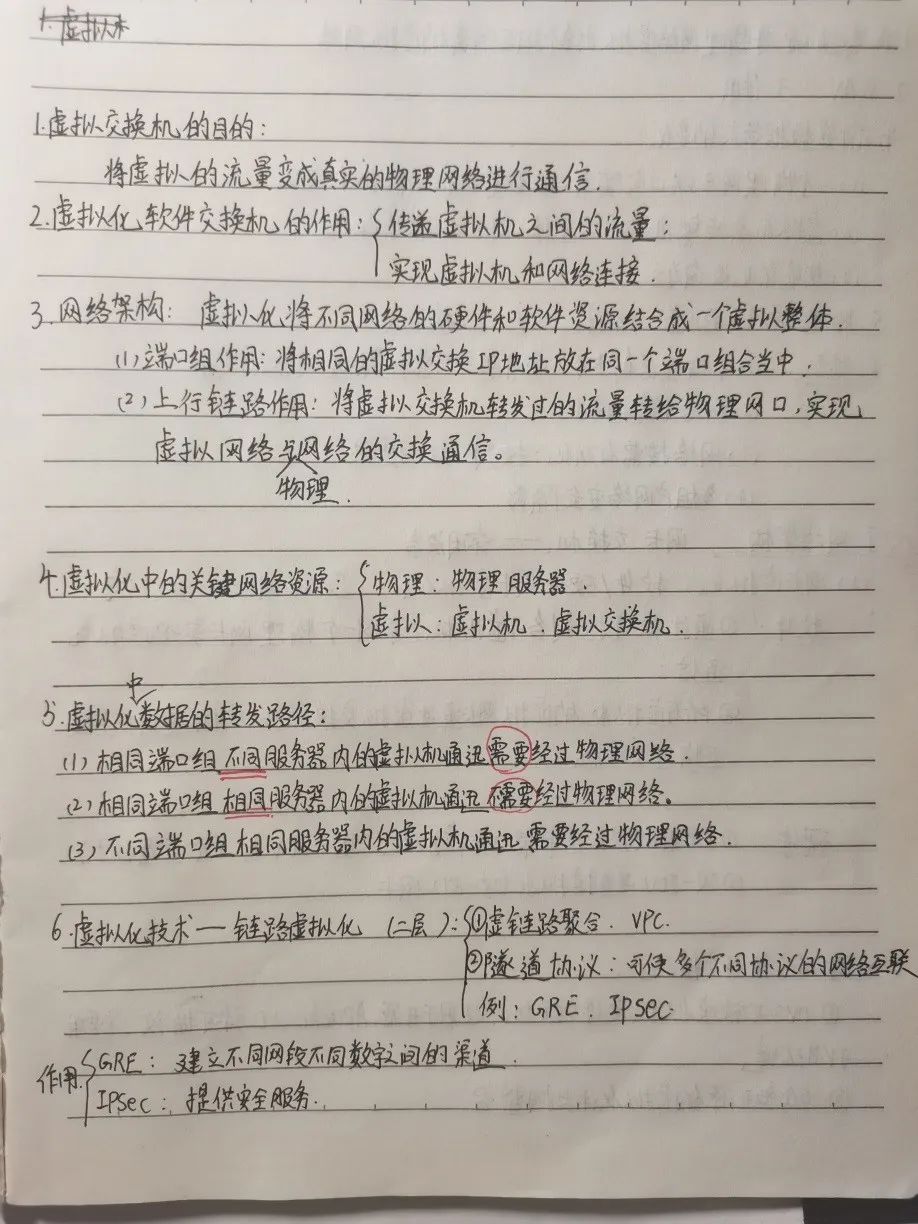 1. 虚拟术
1.虚拟交换机的目的:
将虚拟人的流量变成真实的物理网络进行通信.
2.虚拟化软件交换机的作用: 传递虚拟机之间的流量;
实现虚拟机和网络连接.
3.网络架构: 虚拟化将不同网络的硬件和软件资源结合成一个虚拟整体.
(1)端口组作用: 将相同的虚拟交换IP地址放在同一个端口组合当中.
(2)上行链路作用: 将虚拟交换机转发过的流量转给物理网口,实现
虚拟网络与物理网络的交换通信。
4.虚拟化中的关键网络资源: 物理: 物理服务器.
虚拟: 虚拟机.虚拟交换机.
5.虚拟化中数据的转发路径:
(1)相同端口组不同服务器内的虚拟机通迅需要经过物理网络.
(2)相同端口组相同服务器内的虚拟机通迅不需要经过物理网络。
(3)不同端口组相同服务器内的虚拟机通迅需要经过物理网络.
6.虚拟化技术—链路虚拟化 (二层): ①虚链路聚合. VPC.
②隧道协议: 可使多个不同协议的网络互联
例: GRE. IPsec.
作用: GRE: 建立不同网段不同数字之间的渠道.
IPSec: 提供安全服务.